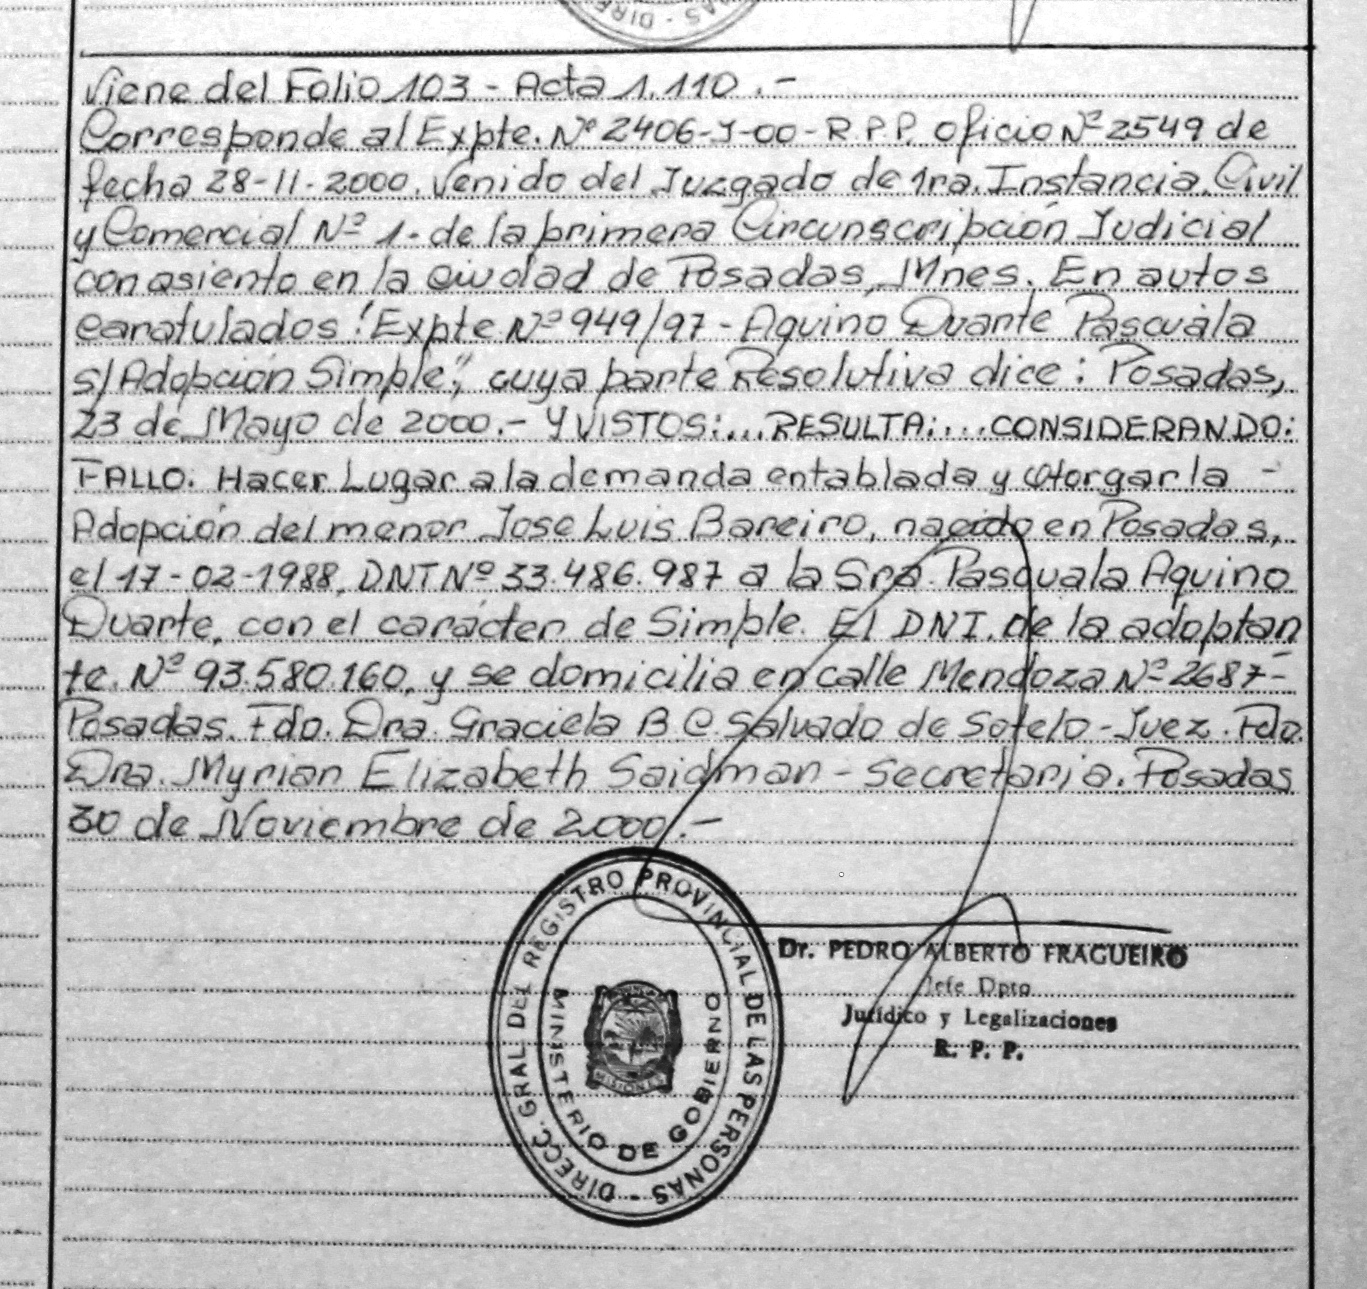 DIRE - AS
Viene del Folio 103 - Acta 1.110.-
Corresponde al Expte. Nº 2406-J-00-R.P.P. oficio Nº 2549 de
fecha 28-11-2000. Venido del Juzgado de 1ra. Instancia. Civil
y Comercial Nº 1- de la primera Circunscripción Judicial
con asiento en la ciudad de Posadas, Mnes. En autos
caratulados "Expte Nº 949/97 - Aquino Duarte Pascuala
s/Adopción Simple", cuya parte Resolutiva dice: Posadas,
23 de Mayo de 2000.- Y VISTOS:...RESULTA:...CONSIDERANDO:
FALLO: Hacer Lugar a la demanda entablada y otorgar la -
Adopción del menor Jose Luis Bareiro, nacido en Posadas,
el 17-02-1988, DNI Nº 33.486.987 a la Sra. Pasquala Aquino
Duarte, con el carácter de Simple. El DNI. de la adoptan
te. Nº 93.580.160, y se domicilia en calle Mendoza Nº 2687-
Posadas. Fdo. Dra. Graciela B C Salvado de Sotelo - Juez. Fdo.
Dra. Myrian Elizabeth Saidman - Secretaria. Posadas
30 de Noviembre de 2000.-
DIRECC. GRAL. DEL REGISTRO PROVINCIAL DE LAS PERSONAS -
MINISTERIO DE GOBIERNO
MISIONES
Dr. PEDRO ALBERTO FRAGUEIRO
Jefe Dpto
Jurídico y Legalizaciones
R. P. P.